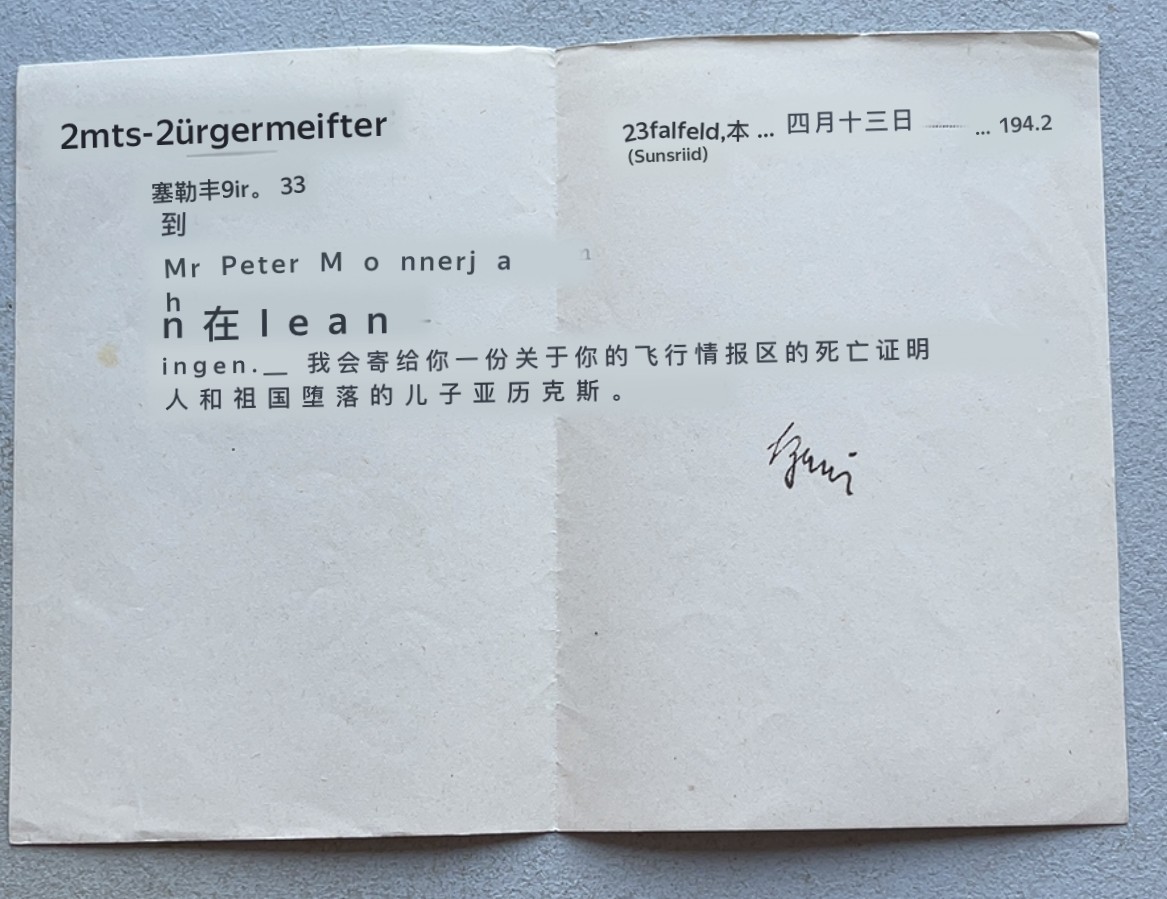 2mts-2ürgermeifter
23falfeld,本 ... 四月十三日 ... 194.2
(Sunsriid)
塞勒丰9ir。 33
到
Mr Peter M o nnerj a
h
n 在 l e a n
ingen.__ 我会寄给你一份关于你的飞行情报区的死亡证明
人和祖国堕落的儿子亚历克斯。